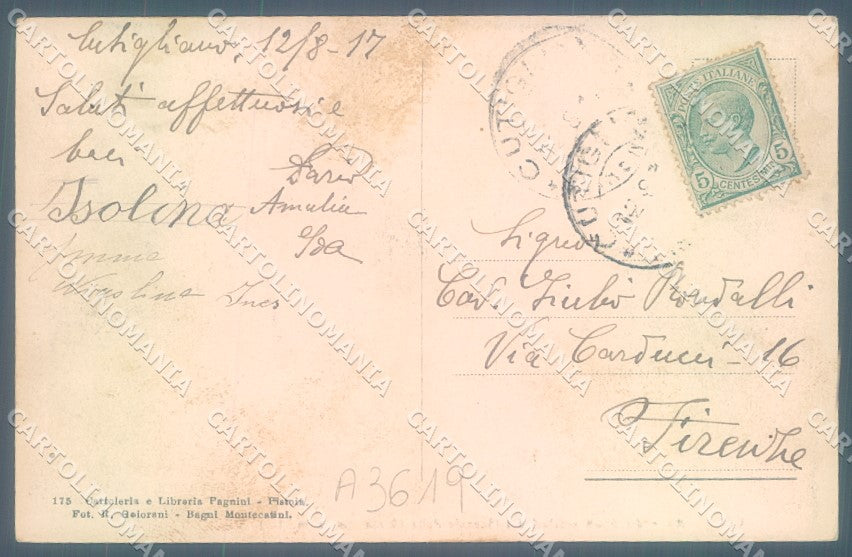 Cutigliano, 12/8-17
Saluti affettuosi e
baci
Dario
Isolina
Amalia
Ida
Emma
Ines
Signor
Cav. Giulio Rondalli
Via Carducci - 16
Firenze
POSTE ITALIANE
5 5
CENTESIMI
CUTIGLIANO
175 Cartoleria e Libreria Pagnini - Pistoia.
Fot. R. Goiorani - Bagni Montecatini.
A3619
CARTOLINOMANIA